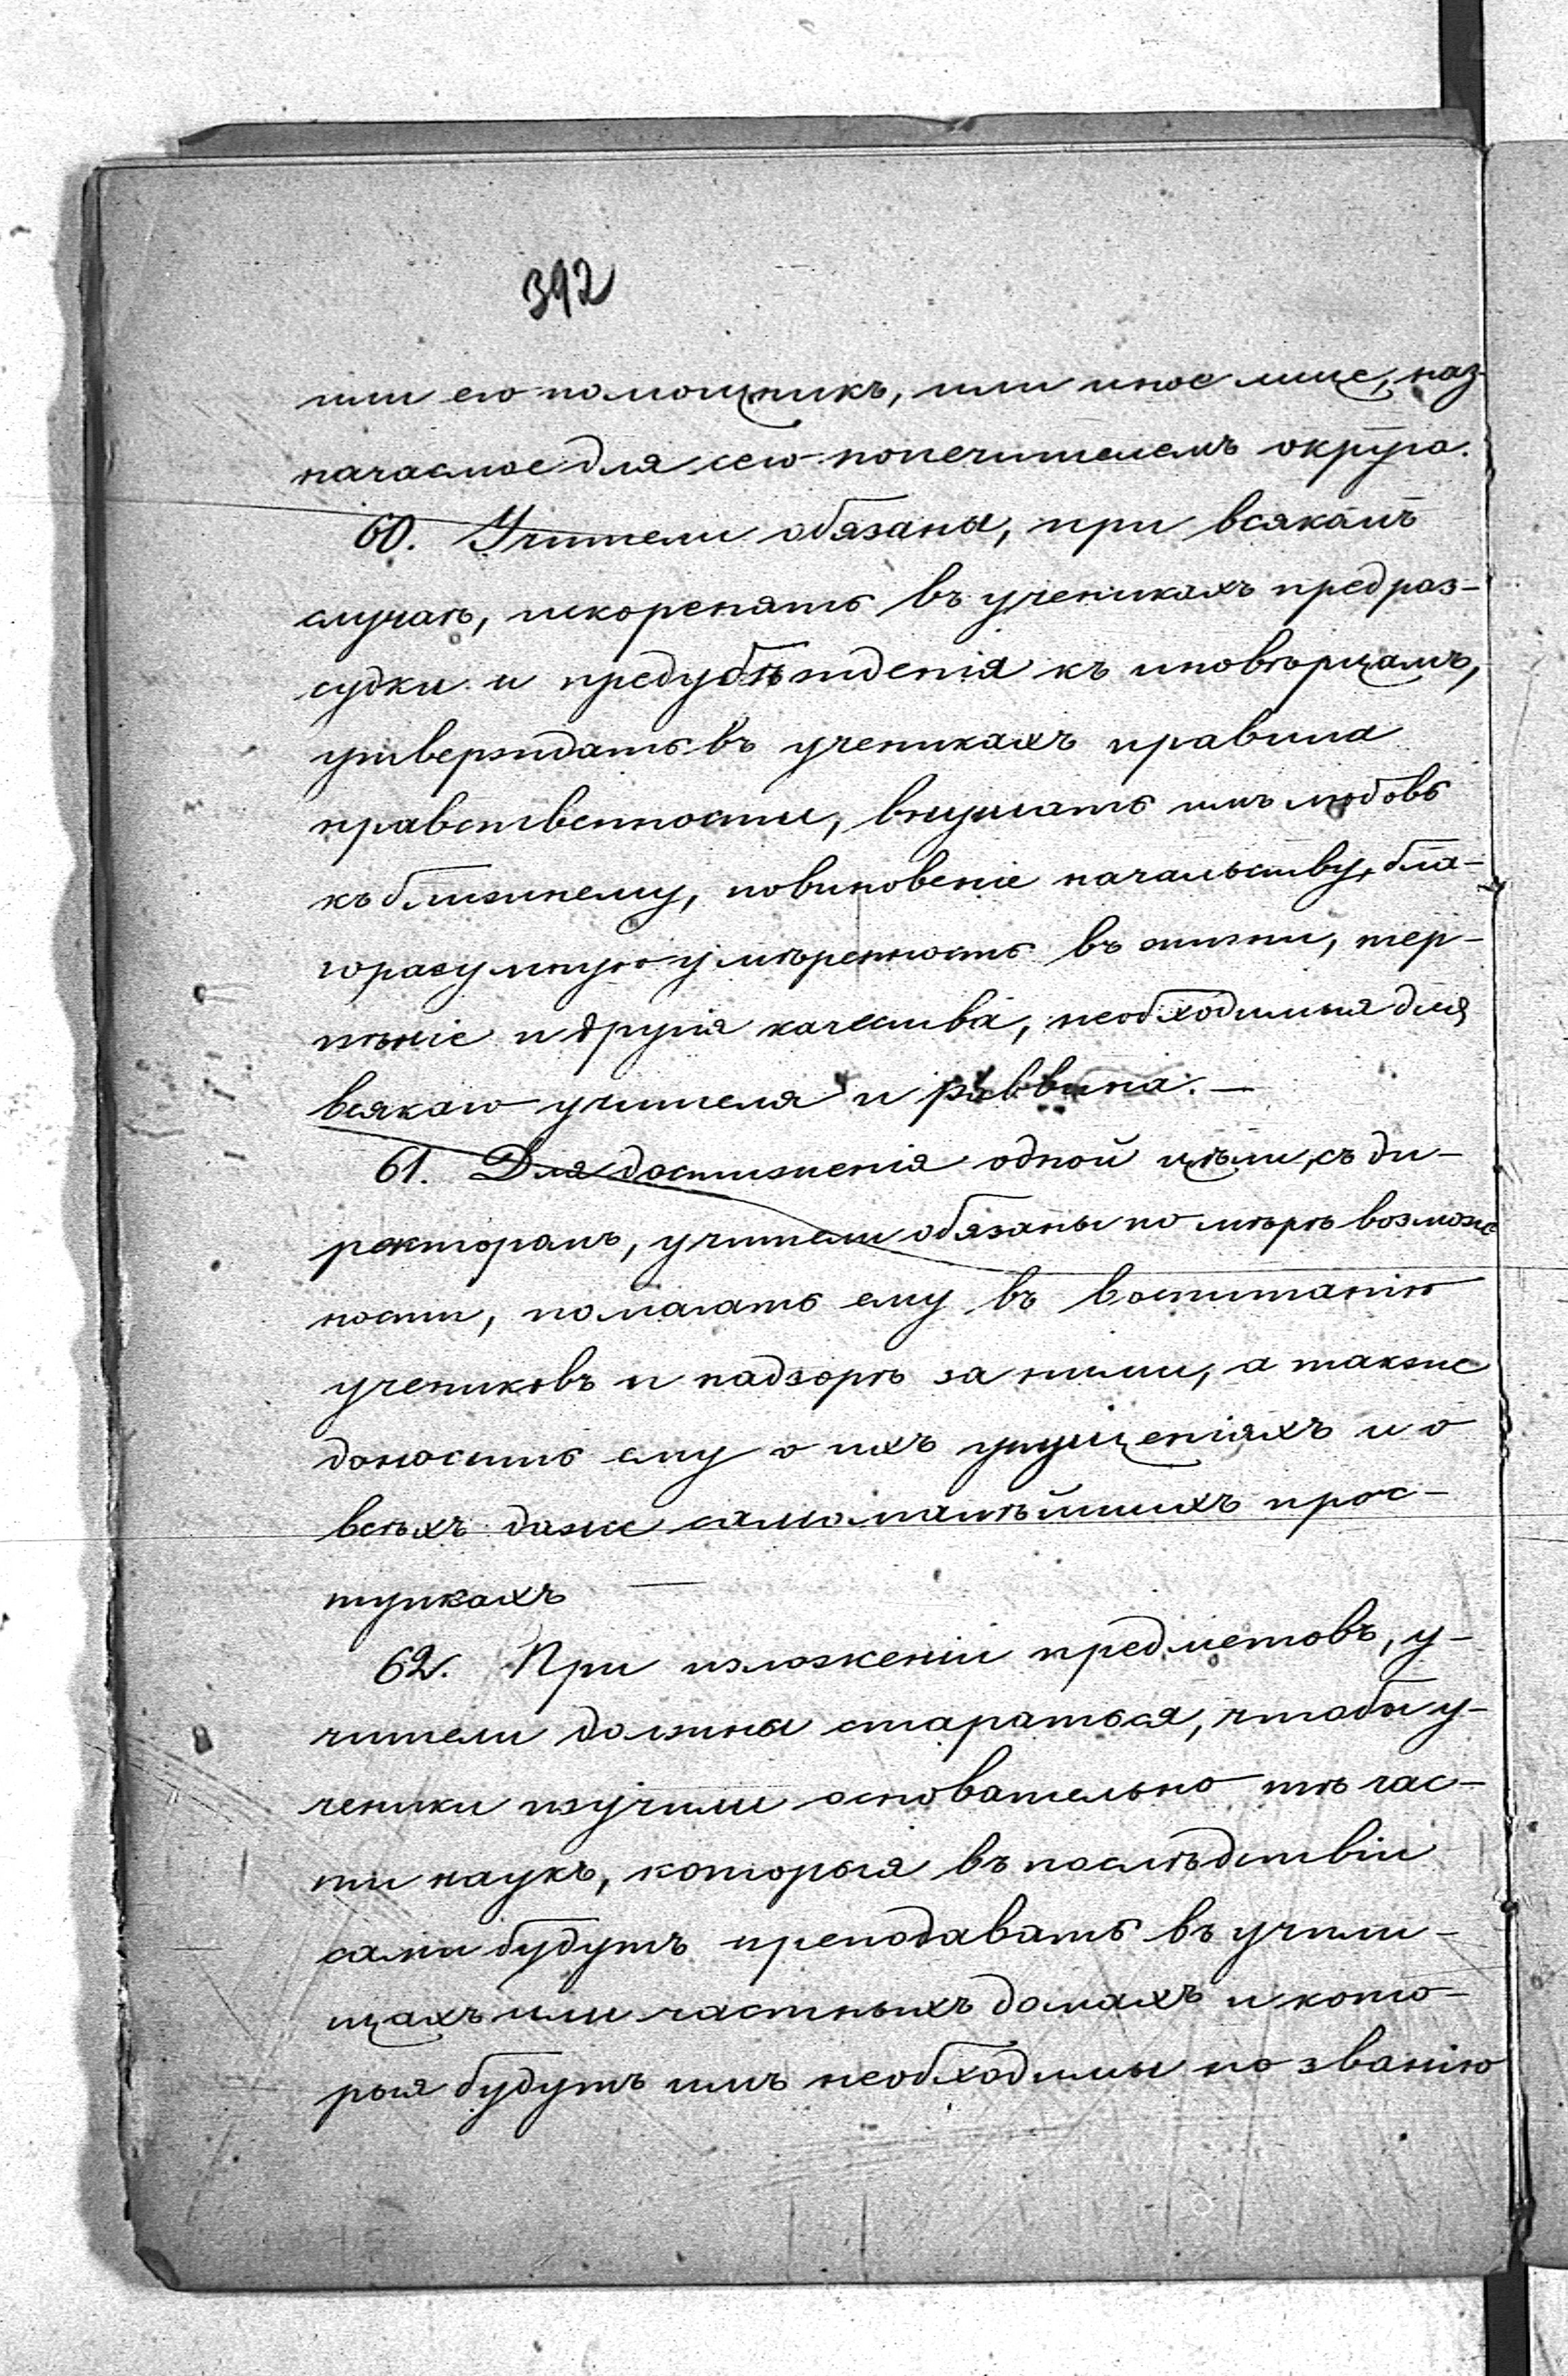 392
или его помощникъ, или иное лице, наз-
начаемое для сего попечителемъ округа.
60. Учители обязаны, при всякомъ
случаѣ, искоренять въ ученикахъ предраз-
судки и предубѣжденія къ иновѣрцамъ,
утверждать въ ученикахъ правила
нравственности, внушать имъ любовь
къ ближнему, повиновеніе начальству, бла-
горазумную умѣренность въ жизни, тер-
пѣніе и другія качества, необходимыя для
всякаго учителя и раввина. —
61. Для достиженія одной цѣли, съ ди-
ректоромъ, учители обязаны по мѣрѣ возмож-
ности, помагать ему въ воспитанію
учениковъ и надзорѣ за ними, а также
доносить ему о ихъ упущеніяхъ и о
всѣхъ даже самомалѣйшихъ прос-
тупкахъ —
62. При изложеніи предметовъ, у-
чители должны стараться, чтобы у-
ченики изучили основательно тѣ час-
ти наукъ, которыя въ послѣдствіи
сами будутъ преподавать въ учили-
щахъ или частныхъ домахъ и кото-
рыя будутъ имъ необходимы по званію